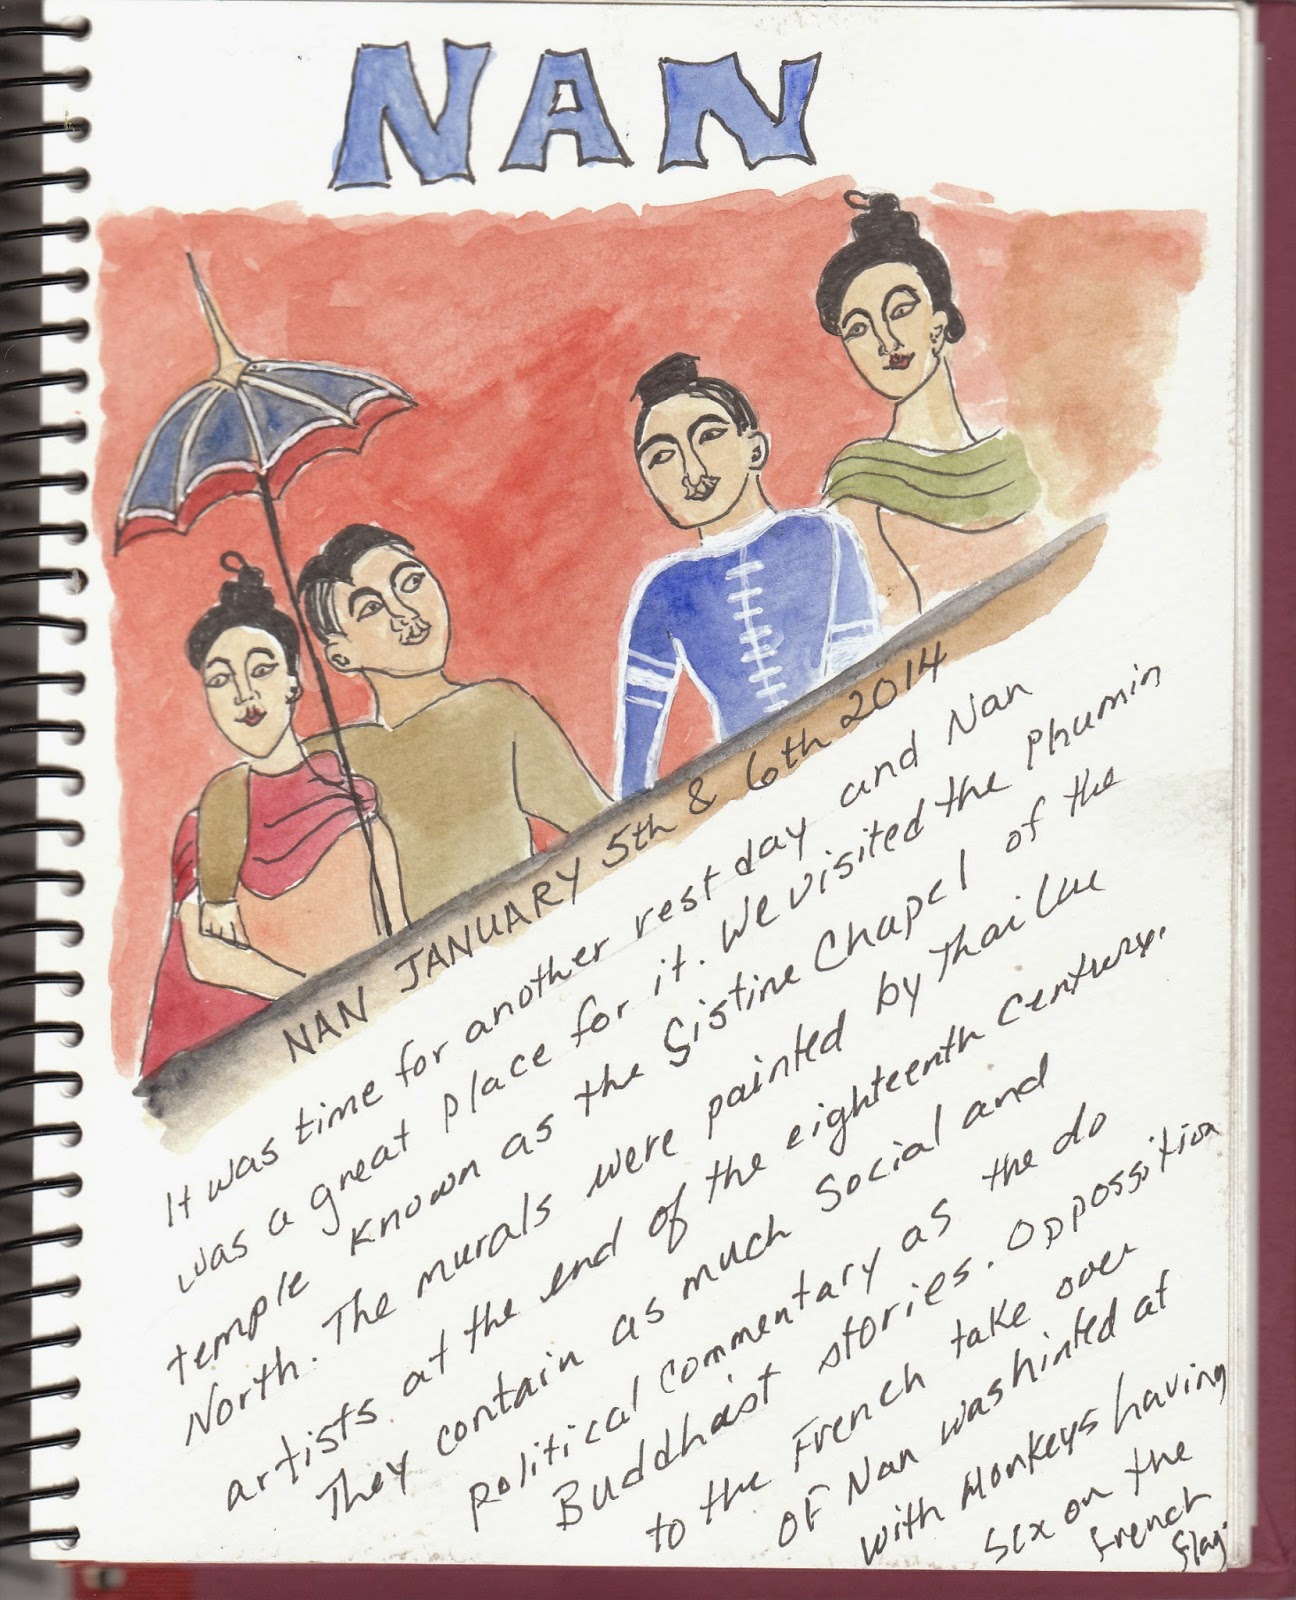 NAN
NAN JANUARY 5th & 6th 2014
It was time for another rest day and Nan
was a great place for it. We visited the Phumin
temple known as the Sistine Chapel of the
North. The murals were painted by Thai Lue
artists at the end of the eighteenth century.
They contain as much Social and
political commentary as the do
Buddhist stories. Oppossition
to the French take over
of Nan was hinted at
with Monkeys having
sex on the
French
flag.